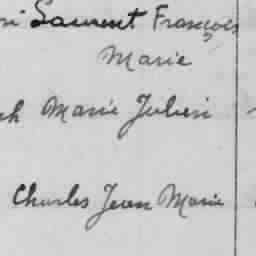 Laurent François
Marie
Marie Julien
Charles Jean Marie